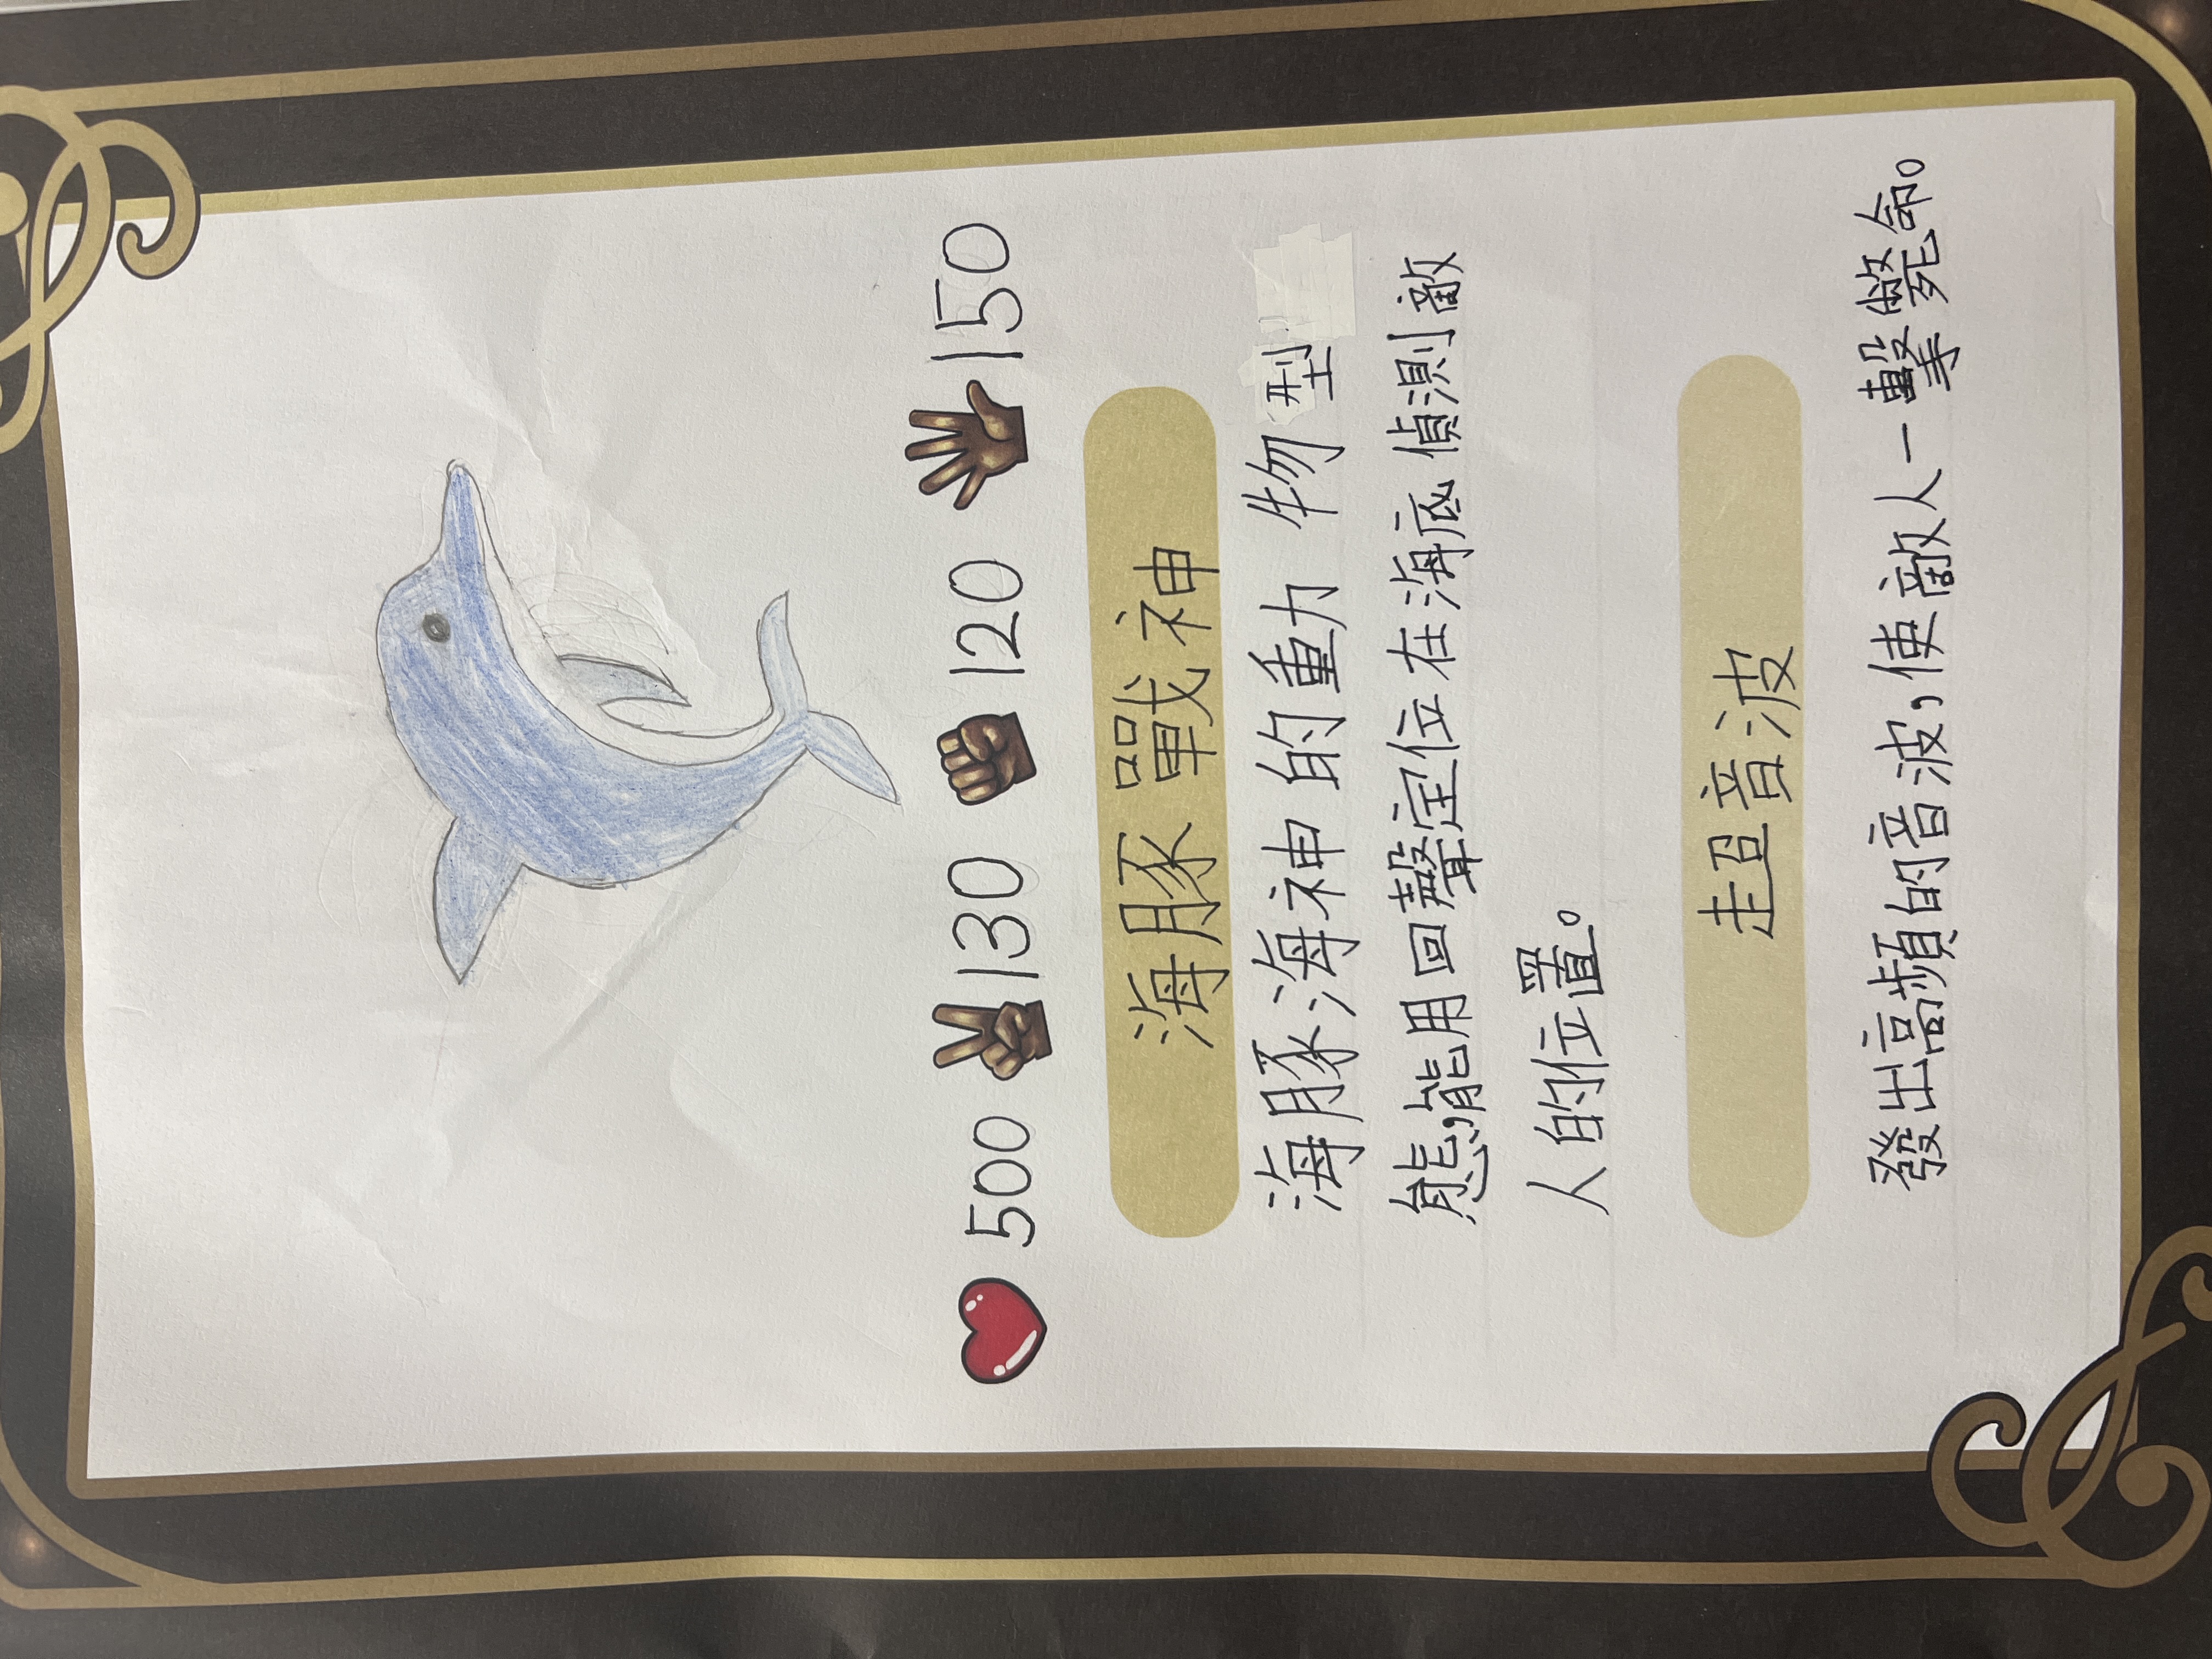 500 130 120 150
海豚戰神
海豚海神的重力物型
態,能用回聲定位在海底偵測敵
人的位置。
超音波
發出高頻的音波,使敵人一擊斃命。